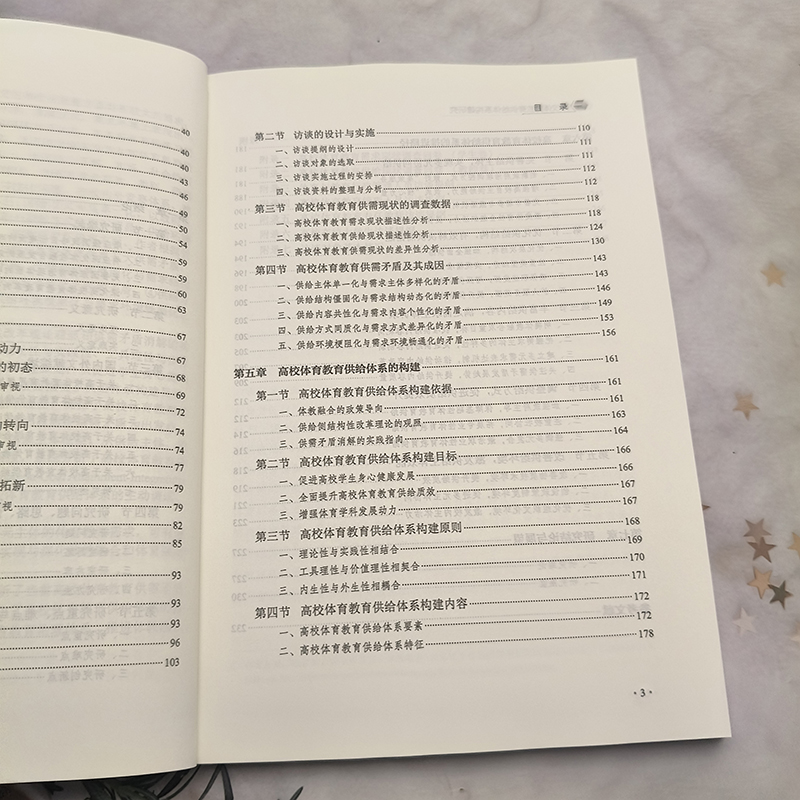 40
40
40
43
46
49
50
54
59
59
60
63
67
动力 67
的初态 68
审视 69
72
的转向 74
审视 74
77
拓新 79
审视 79
82
85
93
93
96
103
目 录
第二节 访谈的设计与实施 110
一、访谈提纲的设计 111
二、访谈对象的选取 111
三、访谈实施过程的安排 112
四、访谈资料的整理与分析 112
第三节 高校体育教育供需现状的调查数据 118
一、高校体育教育需求现状描述性分析 118
二、高校体育教育供给现状描述性分析 124
三、高校体育教育供需现状的差异性分析 130
第四节 高校体育教育供需矛盾及其成因 143
一、供给主体单一化与需求主体多样化的矛盾 143
二、供给结构僵固化与需求结构动态化的矛盾 146
三、供给内容共性化与需求内容个性化的矛盾 149
四、供给方式同质化与需求方式差异化的矛盾 153
五、供给环境梗阻化与需求环境畅通化的矛盾 156
第五章 高校体育教育供给体系的构建 161
第一节 高校体育教育供给体系构建依据 161
一、体教融合的政策导向 161
二、供给侧结构性改革理论的观照 163
三、供需矛盾消解的实践指向 164
第二节 高校体育教育供给体系构建目标 166
一、促进高校学生身心健康发展 166
二、全面提升高校体育教育供给质效 167
三、增强体育学科发展动力 167
第三节 高校体育教育供给体系构建原则 168
一、理论性与实践性相结合 169
二、工具理性与价值理性相契合 170
三、内生性与外生性相耦合 171
第四节 高校体育教育供给体系构建内容 172
一、高校体育教育供给体系要素 172
二、高校体育教育供给体系特征 178
· 3 ·